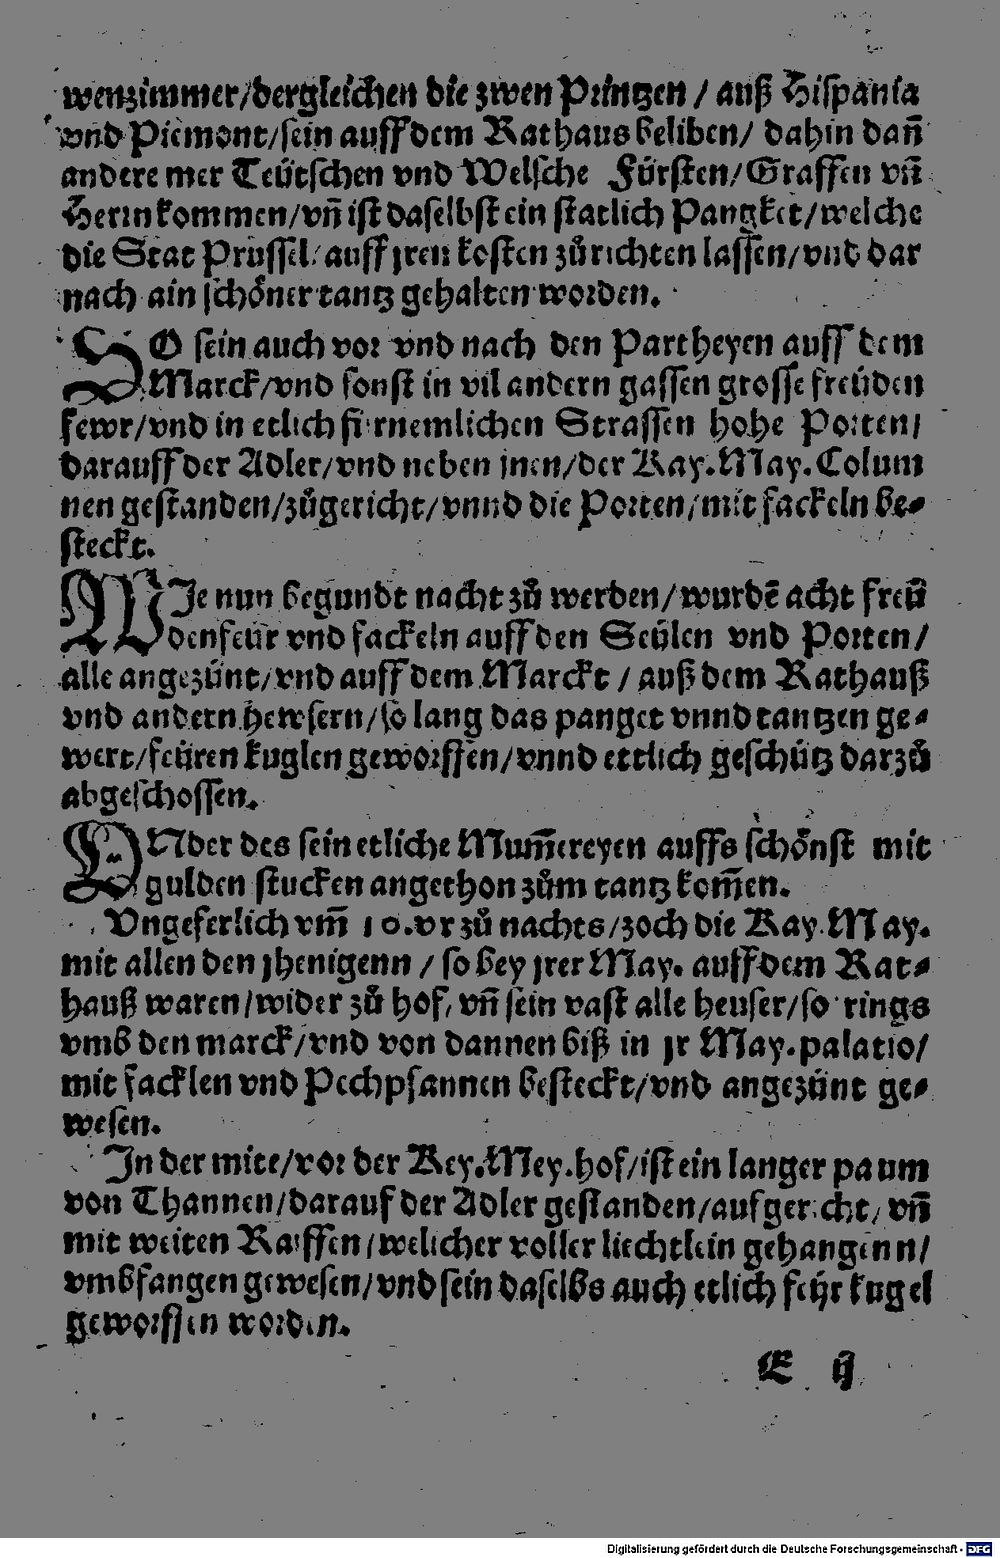 wenzimmer/dergleichen die zwen Printzen / auß Hispania
vnd Piemont/sein auff dem Rathaus beliben/ dahin dañ
andere mer Teütschen vnd Welsche Fürsten/Graffen vñ
Herrn kommen/vñ ist daselbst ein statlich Pangket/welche
die Stat Prüssel/auff jren kosten zůrichten lassen/vnd dar
nach ain schöner tantz gehalten worden.
SO sein auch vor vnd nach den Partheyen auff dem
Marck/vnd sonst in vil andern gassen grosse freüden
fewr/vnd in etlich fürnemlichen Strassen hohe Porten/
darauff der Adler/vnd neben jnen/der Kay.May.Colum
nen gestanden/zůgericht/vnnd die Porten/mit fackeln be-
steckt.
WIe nun begundt nacht zů werden/wurdē acht freü
denfeür vnd fackeln auff den Seülen vnd Porten/
alle angezünt/vnd auff dem Marckt / auß dem Rathauß
vnd andern hewsern/so lang das panget vnnd tantzen ge-
wert/feüren kuglen geworffen/vnnd ettlich geschütz darzů
abgeschossen.
VNder des sein etliche Mum̃ereyen auffs schönst mit
gulden stucken angethon zům tantz kom̃en.
Vngeferlich vm̃ 10.vr zů nachts/zoch die Kay.May.
mit allen den jhenigenn / so bey jrer May. auff dem Rat-
hauß waren/wider zů hof, vñ sein vast alle heuser/so rings
vmb den marck/vnd von dannen biß in jr May.palatio/
mit facklen vnd Pechpfannen besteckt/vnd angezünt ge-
wesen.
In der mite/vor der Key.Mey.hof/ist ein langer paum
von Thannen/darauf der Adler gestanden/aufgericht/vñ
mit weiten Raiffen/welicher voller liechtlein gehangenn/
vmbfangen gewesen/vnd sein daselbs auch etlich fehr kugel
geworffen worden.
E ij
Digitalisierung gefördert durch die Deutsche Forschungsgemeinschaft - DFG